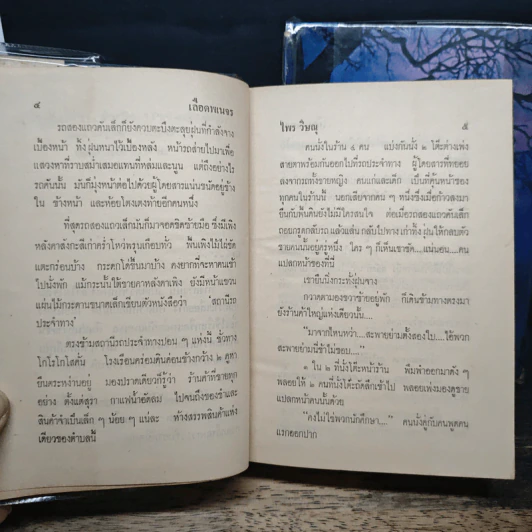 ๔ เลือดพเนจร
รถสองแถวคันเล็กก็ยังควบตะบึงตะลุยฝุ่นที่กำลังจาง
เบื้องหน้า ทั้งฝุ่นหนาไว้เบื้องหลัง หน้ารถส่ายไปมาเพื่อ
แสวงหาที่ราบสม่ำเสมอแทนที่หล่มและนูน แต่ถึงอย่างไร
รถคันนั้น มันก็มุ่งหน้าต่อไปด้วยผู้โดยสารแน่นขนัดอยู่ข้าง
ใน ข้างหน้า และห้อยโตงเตงท้ายอีกคนหนึ่ง
ที่สุดรถสองแถวเล็กมันก็มาจอดชิดซ้ายมือ ซึ่งมีเพิง
หลังคาสังกะสีเก่าคร่ำโหว่พรุนเกือบทั่ว พื้นเพิงไม้ไม่ขัด
แตะกร่อนบ้าง กระดกโด่ขึ้นมาบ้าง คงยากที่จะหาคนเข้า
ไปนั่งพัก แม้กระนั้นใต้ชายคาหลังคาเพิง ยังมีหน้าแขวน
แผ่นไม้กระดานขนาดเล็กเขียนตัวหนังสือว่า 'สถานีรถ
ประจำทาง'
ตรงข้ามสถานีรถประจำทางปอน ๆ แห่งนี้ ขั้วทาง
โกโรโกโสคั่น โรงเรือนคร่อมดินค่อนข้างกว้าง ๒ คูหา
ยืนตระหง่านอยู่ มองปราดเดียวก็รู้ว่า ร้านค้าที่ขายทุก
อย่าง ตั้งแต่สุรา กาแฟน้ำอัดลม ไปจนถึงของชำและ
สินค้าจำเป็นเล็ก ๆ น้อย ๆ แน่ละ ห้างสรรพสินค้าแห่ง
เดียวของตำบลนี้
ไพร วิษณุ ๕
คนนั่งในร้าน ๔ คน แบ่งกันนั่ง ๒ โต๊ะต่างเพ่ง
สายตาพร้อมกันออกไปที่รถประจำทาง ผู้โดยสารที่ทยอย
ลงจากรถทั้งชายหญิง คนแก่และเด็ก เป็นที่คุ้นหน้าของ
ทุกคนในร้านนี้ นอกเสียจากคน ๆ หนึ่งซึ่งเมื่อก้าวลงมา
ยืนกับพื้นดินยังไม่มีใครสนใจ ต่อเมื่อรถสองแถวคันเล็ก
ถอยรถกลับรถ แล้วแล่น กลับไปทางเก่าทิ้งฝุ่นให้กลบตัว
ชายคนนั้นอยู่ครู่หนึ่ง ใคร ๆ ก็เห็นเขาชัด....แน่นอน....คน
แปลกหน้าของที่นี่
เขายืนนิ่งกระทั่งฝุ่นจาง
กวาดตามองขวาซ้ายอยู่พัก ก็เดินข้ามทางตรงมา
ยังร้านค้าใหญ่แห่งเดียวนั้น....
"มาจากไหนหว่า....สะพายย่ามตั้งสองใบ....ไอ้พวก
สะพายย่ามนี่ข้าไม่ชอบ...."
๑ ใน ๒ ที่นั่งโต๊ะหน้าร้าน พึมพำออกมาดัง ๆ
พลอยให้ ๒ คนที่นั่งโต๊ะถัดลึกเข้าไป พลอยเพ่งมองดูชาย
แปลกหน้าคนนั้นด้วย
"คงไม่ใช่พวกนักศึกษา...." คนนั่งคู่กับคนพูดคน
แรกออกปาก